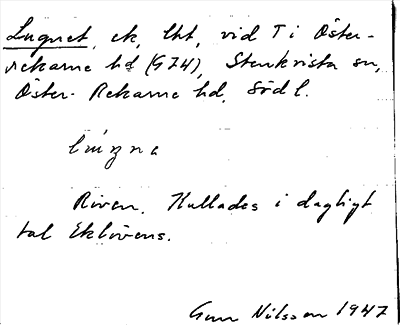 Lugnet, ek, lht, vid T i Öster-
rekarne hd (G74), Stenkvista sn,
Öster- Rekarne hd, Södl.
Riven. Kallades i dagligt
tal Eklövens.
Gun Nilsson 1947